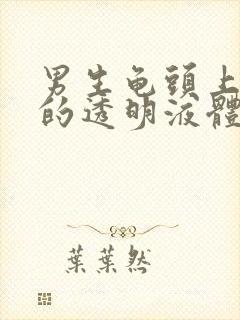 男生龟頭上
的透明液體
葉葉然